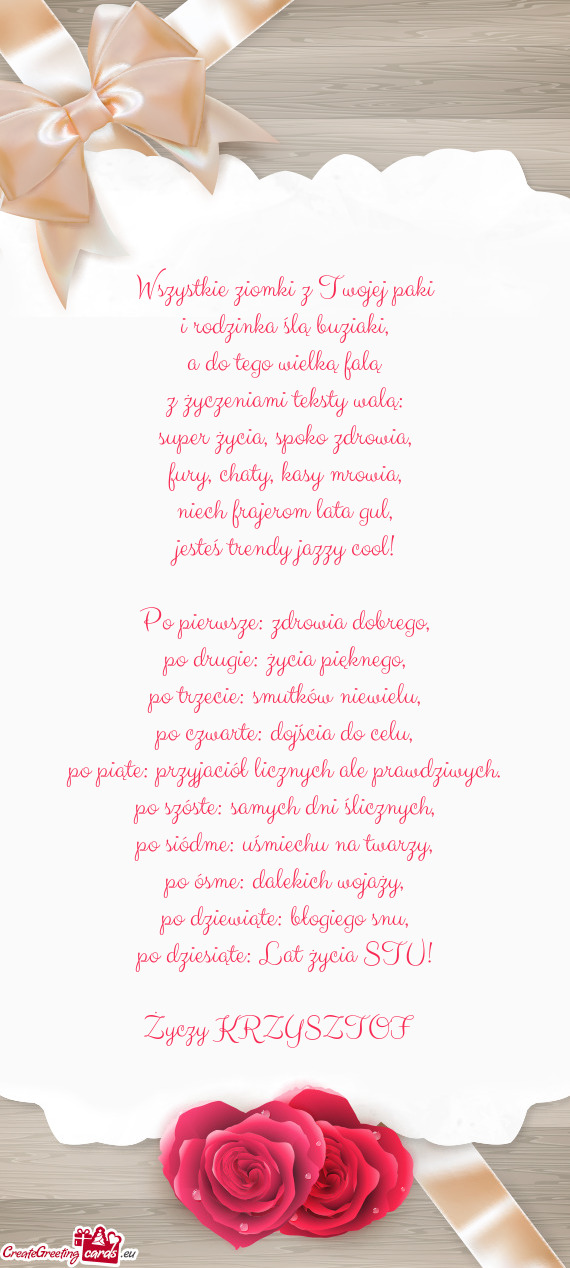 Wszystkie ziomki z Twojej paki
i rodzinka ślą buziaki,
a do tego wielką falą
z życzeniami teksty walą:
super życia, spoko zdrowia,
fury, chaty, kasy mrowia,
niech frajerom lata gul,
jesteś trendy jazzy cool!
Po pierwsze: zdrowia dobrego,
po drugie: życia pięknego,
po trzecie: smutków niewielu,
po czwarte: dojścia do celu,
po piąte: przyjaciół licznych ale prawdziwych.
po szóste: samych dni ślicznych,
po siódme: uśmiechu na twarzy,
po ósme: dalekich wojaży,
po dziewiąte: błogiego snu,
po dziesiąte: Lat życia STU!
Życzy KRZYSZTOF
CreateGreeting cards .eu